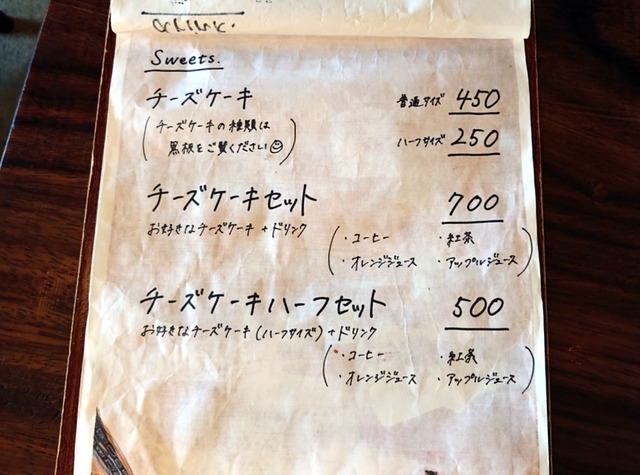 Sweets.
チーズケーキ 普通サイズ 450
(チーズケーキの種類は
黒板をご覧ください☺) ハーフサイズ 250
チーズケーキセット 700
お好きなチーズケーキ + ドリンク
(・コーヒー ・紅茶
・オレンジジュース ・アップルジュース)
チーズケーキハーフセット 500
お好きなチーズケーキ(ハーフサイズ) + ドリンク
(・コーヒー ・紅茶
・オレンジジュース ・アップルジュース)